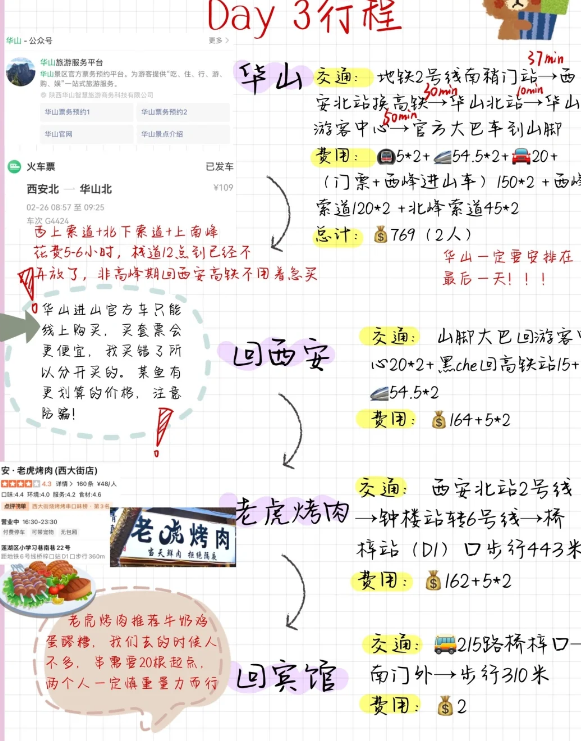 Day 3行程
华山 - 公众号
更多 >
华山旅游服务平台
华山景区官方票务预约平台。为游客提供"吃、住、行、游、
购、娱"一站式旅游服务。
陕西华山智慧旅游商务科技有限公司
华山票务预约1
华山票务预约2
华山官网
华山景点介绍
火车票
已发车
西安北 — 华山北
¥109
02-26 08:57 至 09:25
车次 G4424
西上索道+北下索道+上南峰
花费5-6小时，栈道12点到已经不
开放了，非高峰期回西安高铁不用着急买
华山进山官方车只能
线上购买，买套票会
更便宜，我买错了所
以分开买的。某鱼有
更划算的价格，注意
防骗！
华山
37min
交通：地铁2号线南稍门站→西
安北站换高铁→华山北站→华山
30min
10min
游客中心→官方大巴车到山脚
50min
费用：5*2+54.5*2+20+
（门票+西峰进山车）150*2+西峰
索道120*2+北峰索道45*2
总计：769（2人）
华山一定要安排在
最后一天！！！
回西安
交通：山脚大巴回游客中
心20*2+黑che回高铁站15+
54.5*2
费用：164+5*2
安·老虎烤肉(西大街店)
4.3 详情> 160条 ¥48/人
口味:4.4 环境:4.0 服务:4.2 食材:4.6
营业中 16:30-23:30
付费停车 可带宠物 无包厢
莲湖区小学习巷南巷22号
距地铁6号线桥梓口站D1口步行360m
老虎烤肉
当天鲜肉 拒绝隔夜
老虎烤肉
交通：西安北站2号线
→钟楼站转6号线→桥
梓站（D1）口步行443米
费用：162+5*2
老虎烤肉推荐牛奶鸡
蛋醪糟，我们去的时候人
不多，串需要20根起点，
两个人一定慎重量力而行
回宾馆
交通：215路桥梓口→
南门外→步行310米
费用：2